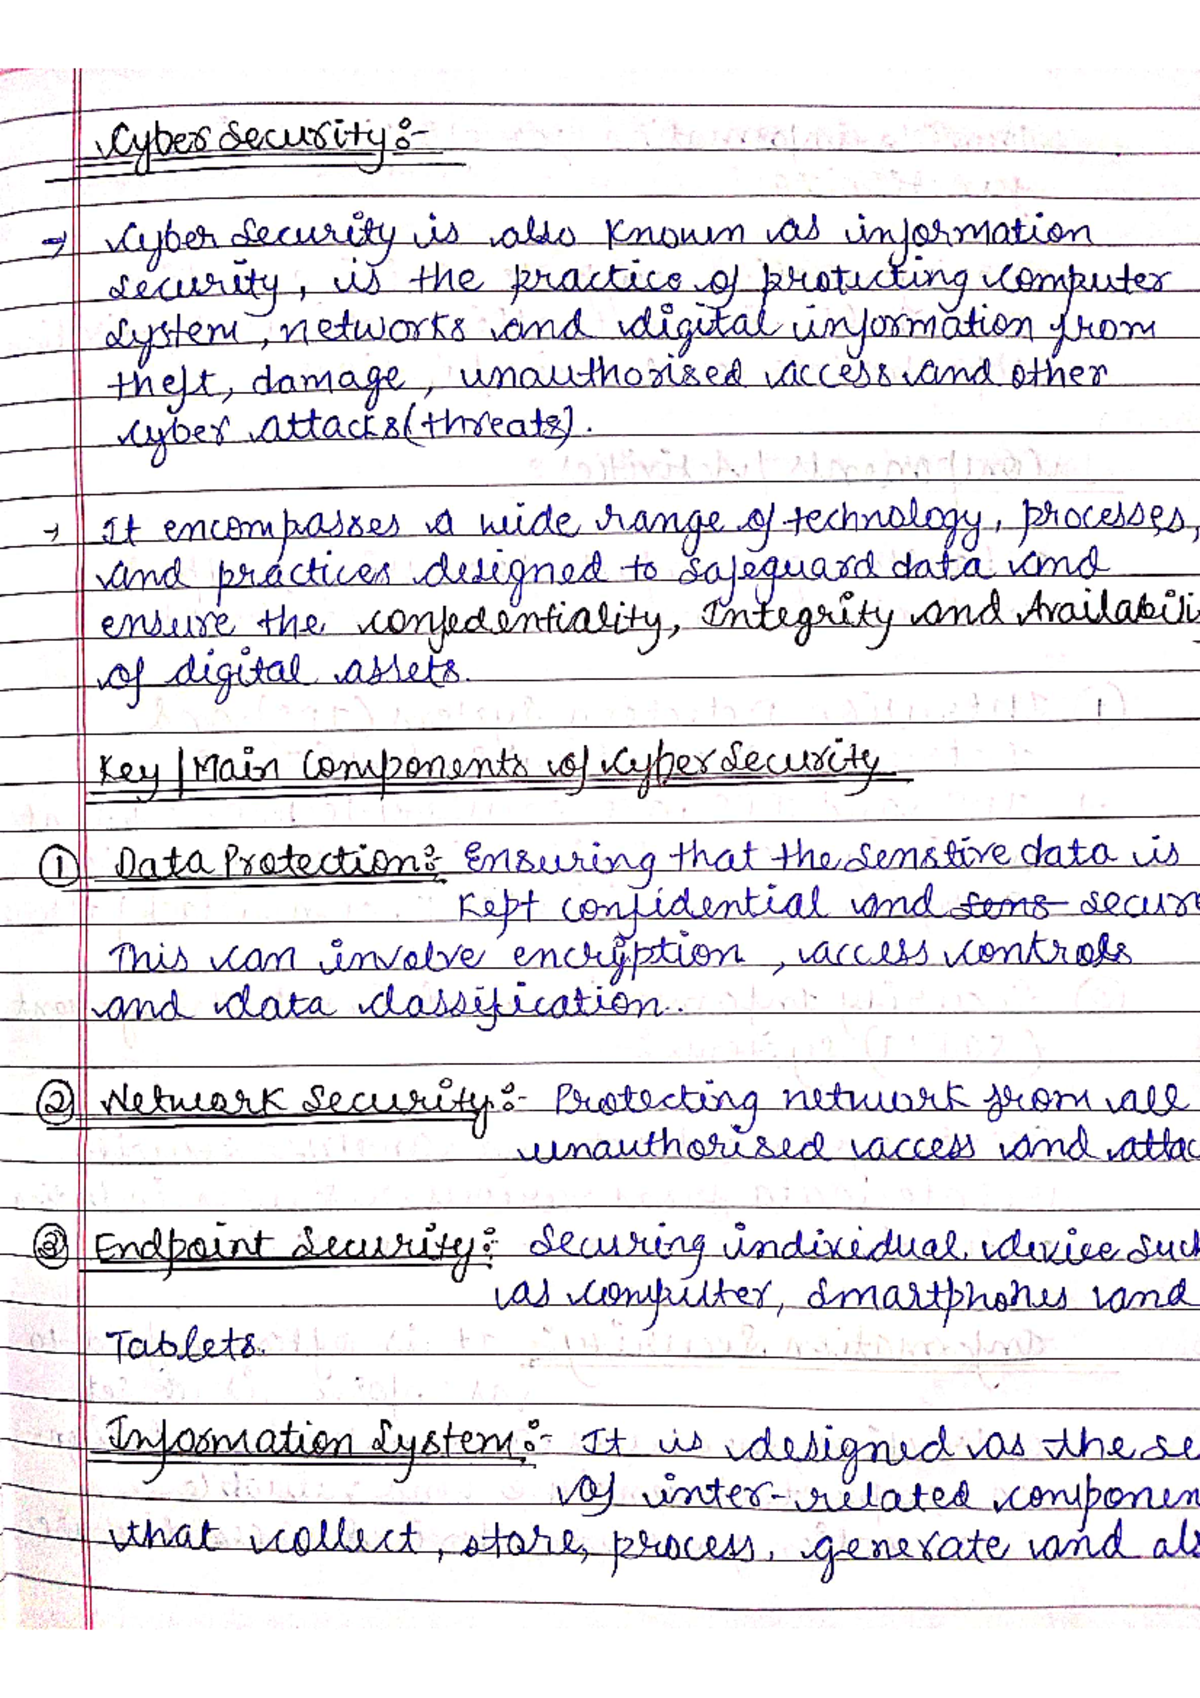 Cyber Security :-
→ Cyber Security is also known as information
security, is the practice of protecting computer
system, networks and digital information from
theft, damage, unauthorised access and other
cyber attacks(threats).
→ It encompasses a wide range of technology, processes,
and practices designed to safeguard data and
ensure the confedentiality, Integrity and Availabili
of digital assets.
Key/Main Components of Cyber Security
① Data Protection:- Ensuring that the sensitive data is
Kept confidential and sens secure
This can involve encryption, access controls
and data classification.
② Network Security:- Protecting network from all
unauthorised access and attac
③ Endpoint Security:- Securing individual device such
as computer, smartphones and
Tablets.
Information System:- It is designed as the se
of inter-related componen
that collect, store, process, generate and als